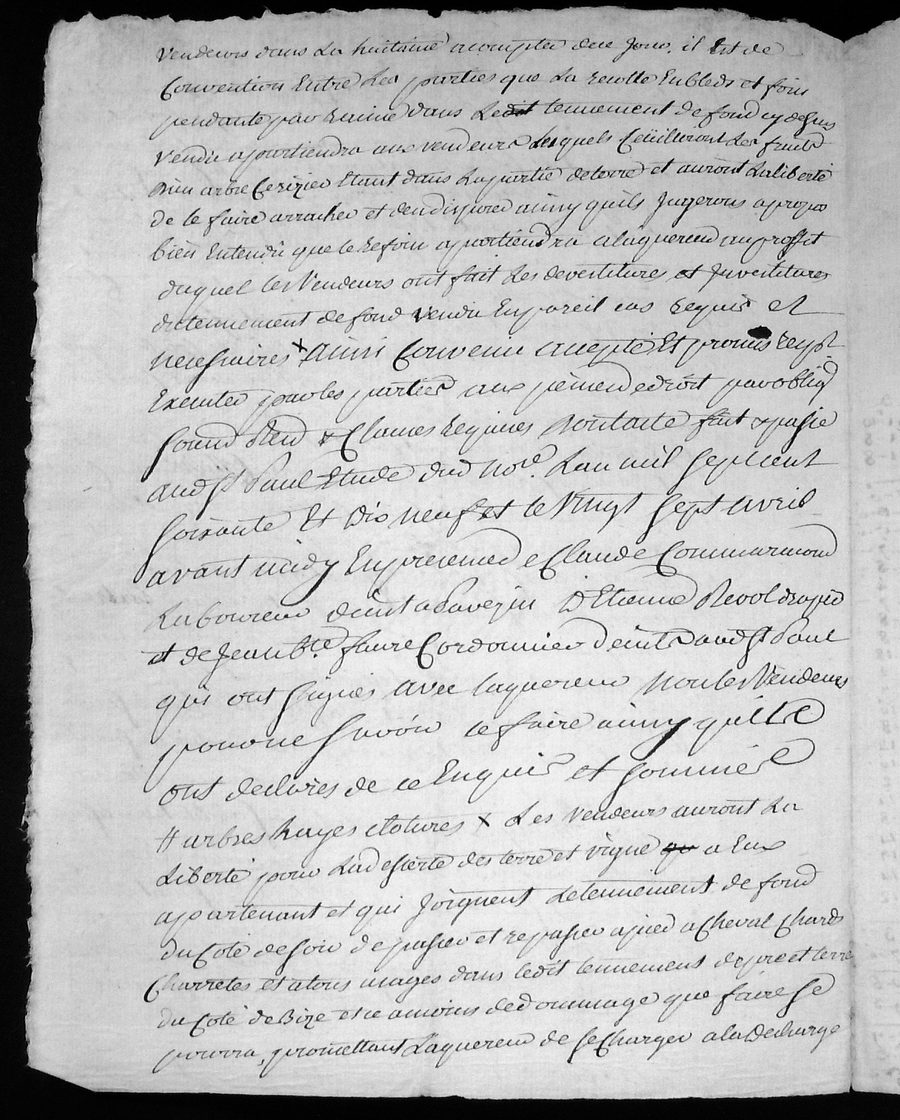 vendeurs dans La huitaine a compter de ce Jour. il Est de
Convention Entre Les parties que La recolte En bleds et foin
pendante par racine dans Ledit tennement de fond cy dessus
vendu apartiendra aux vendeurs Lesquels Ceuilleront Les fruits
d'un arbre Cerizier Etant dans La partie de terre et auront La liberté
de le faire arracher et d'en disposer ainsy quils Jugerons apropos
bien Entendu que le Refoin apartiendra a laquereur au proffit
duquel les Vendeurs ont fait Les devestitures et Investitures
du tennement de fond vendu En pareil cas requis et
necessaires x ainsi Convenu accepté Et promis respt
Executer par les parties aux peines de droit par obliqn
soum Ren & Clauses Requises Dont acte fait & passé
aud st Paul Etude dud nore. Lan mil sept cent
soixante Et dix neuf et le Vingt sept avril
avant midy En presence de Claude Commarmond
Laboureur demt a Pavezin D'Etienne Revol drapier
et de Jean Bte. faure Cordonnier demts aud st Paul
qui ont signés avec laquereur Non les Vendeurs
pour ne savoir le faire ainsy quils
ont declarés de ce Enquis et sommés
# arbres hayes clotures x Les vendeurs auront La
Liberté pour La deserte des terre et vigne a Eux
apartenant et qui Joignent le tennement de fond
du Coté de soir de passer et repasser a pied a Cheval Chards
Charretes et a tous usages dans ledit tennement de pré et terre
du Coté de Bize et a moins de dommage que faire se
pourra, promettant Laquereur de se Charger a la Decharge